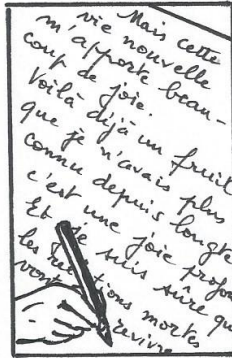 Mais cette
vie nouvelle
m'apporte beau-
coup de joie.
Voilà déjà un fruit
que je n'avais plus
connu depuis longte
c'est une joie profon
Et je suis sûre qu
les relations mortes
vont revivre